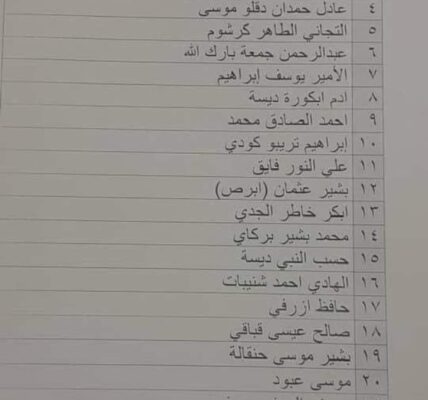 ٤ عادل حمدان دقلو موسى
٥ التجاني الطاهر كرشوم
٦ عبدالرحمن جمعة بارك الله
٧ الأمير يوسف إبراهيم
٨ ادم ابكورة ديسة
٩ احمد الصادق محمد
١٠ إبراهيم تريبو كودي
١١ علي النور فايق
١٢ بشير عثمان (ابرص)
١٣ ابكر خاطر الجدي
١٤ محمد بشير بركاي
١٥ حسب النبي ديسة
١٦ الهادي احمد شنيبات
١٧ حافظ ازرفي
١٨ صالح عيسى قباقي
١٩ بشير موسى حنقالة
٢٠ موسى عبود